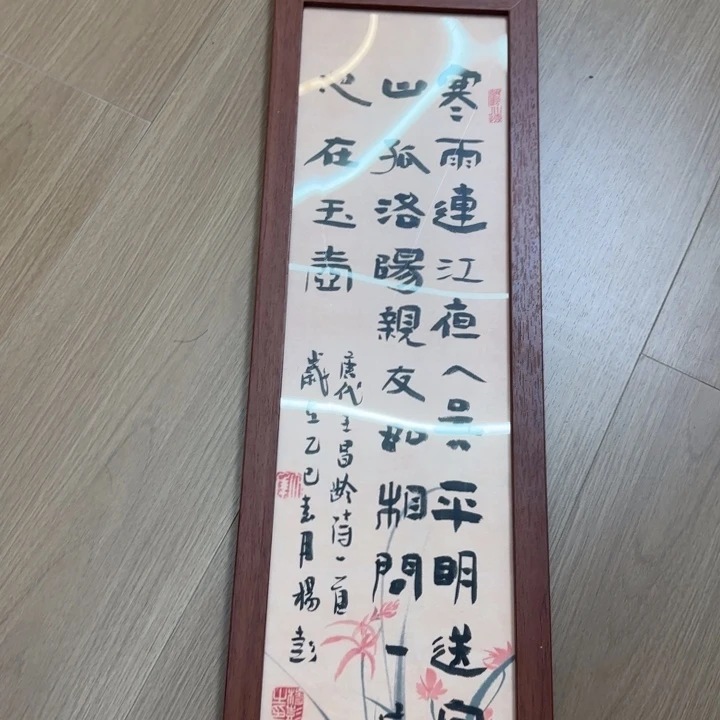 寒雨連江夜入吴平明送
山孤洛陽親友如相問一
心在玉壺
唐代王昌龄诗一首
歲在乙巳春月楊彭